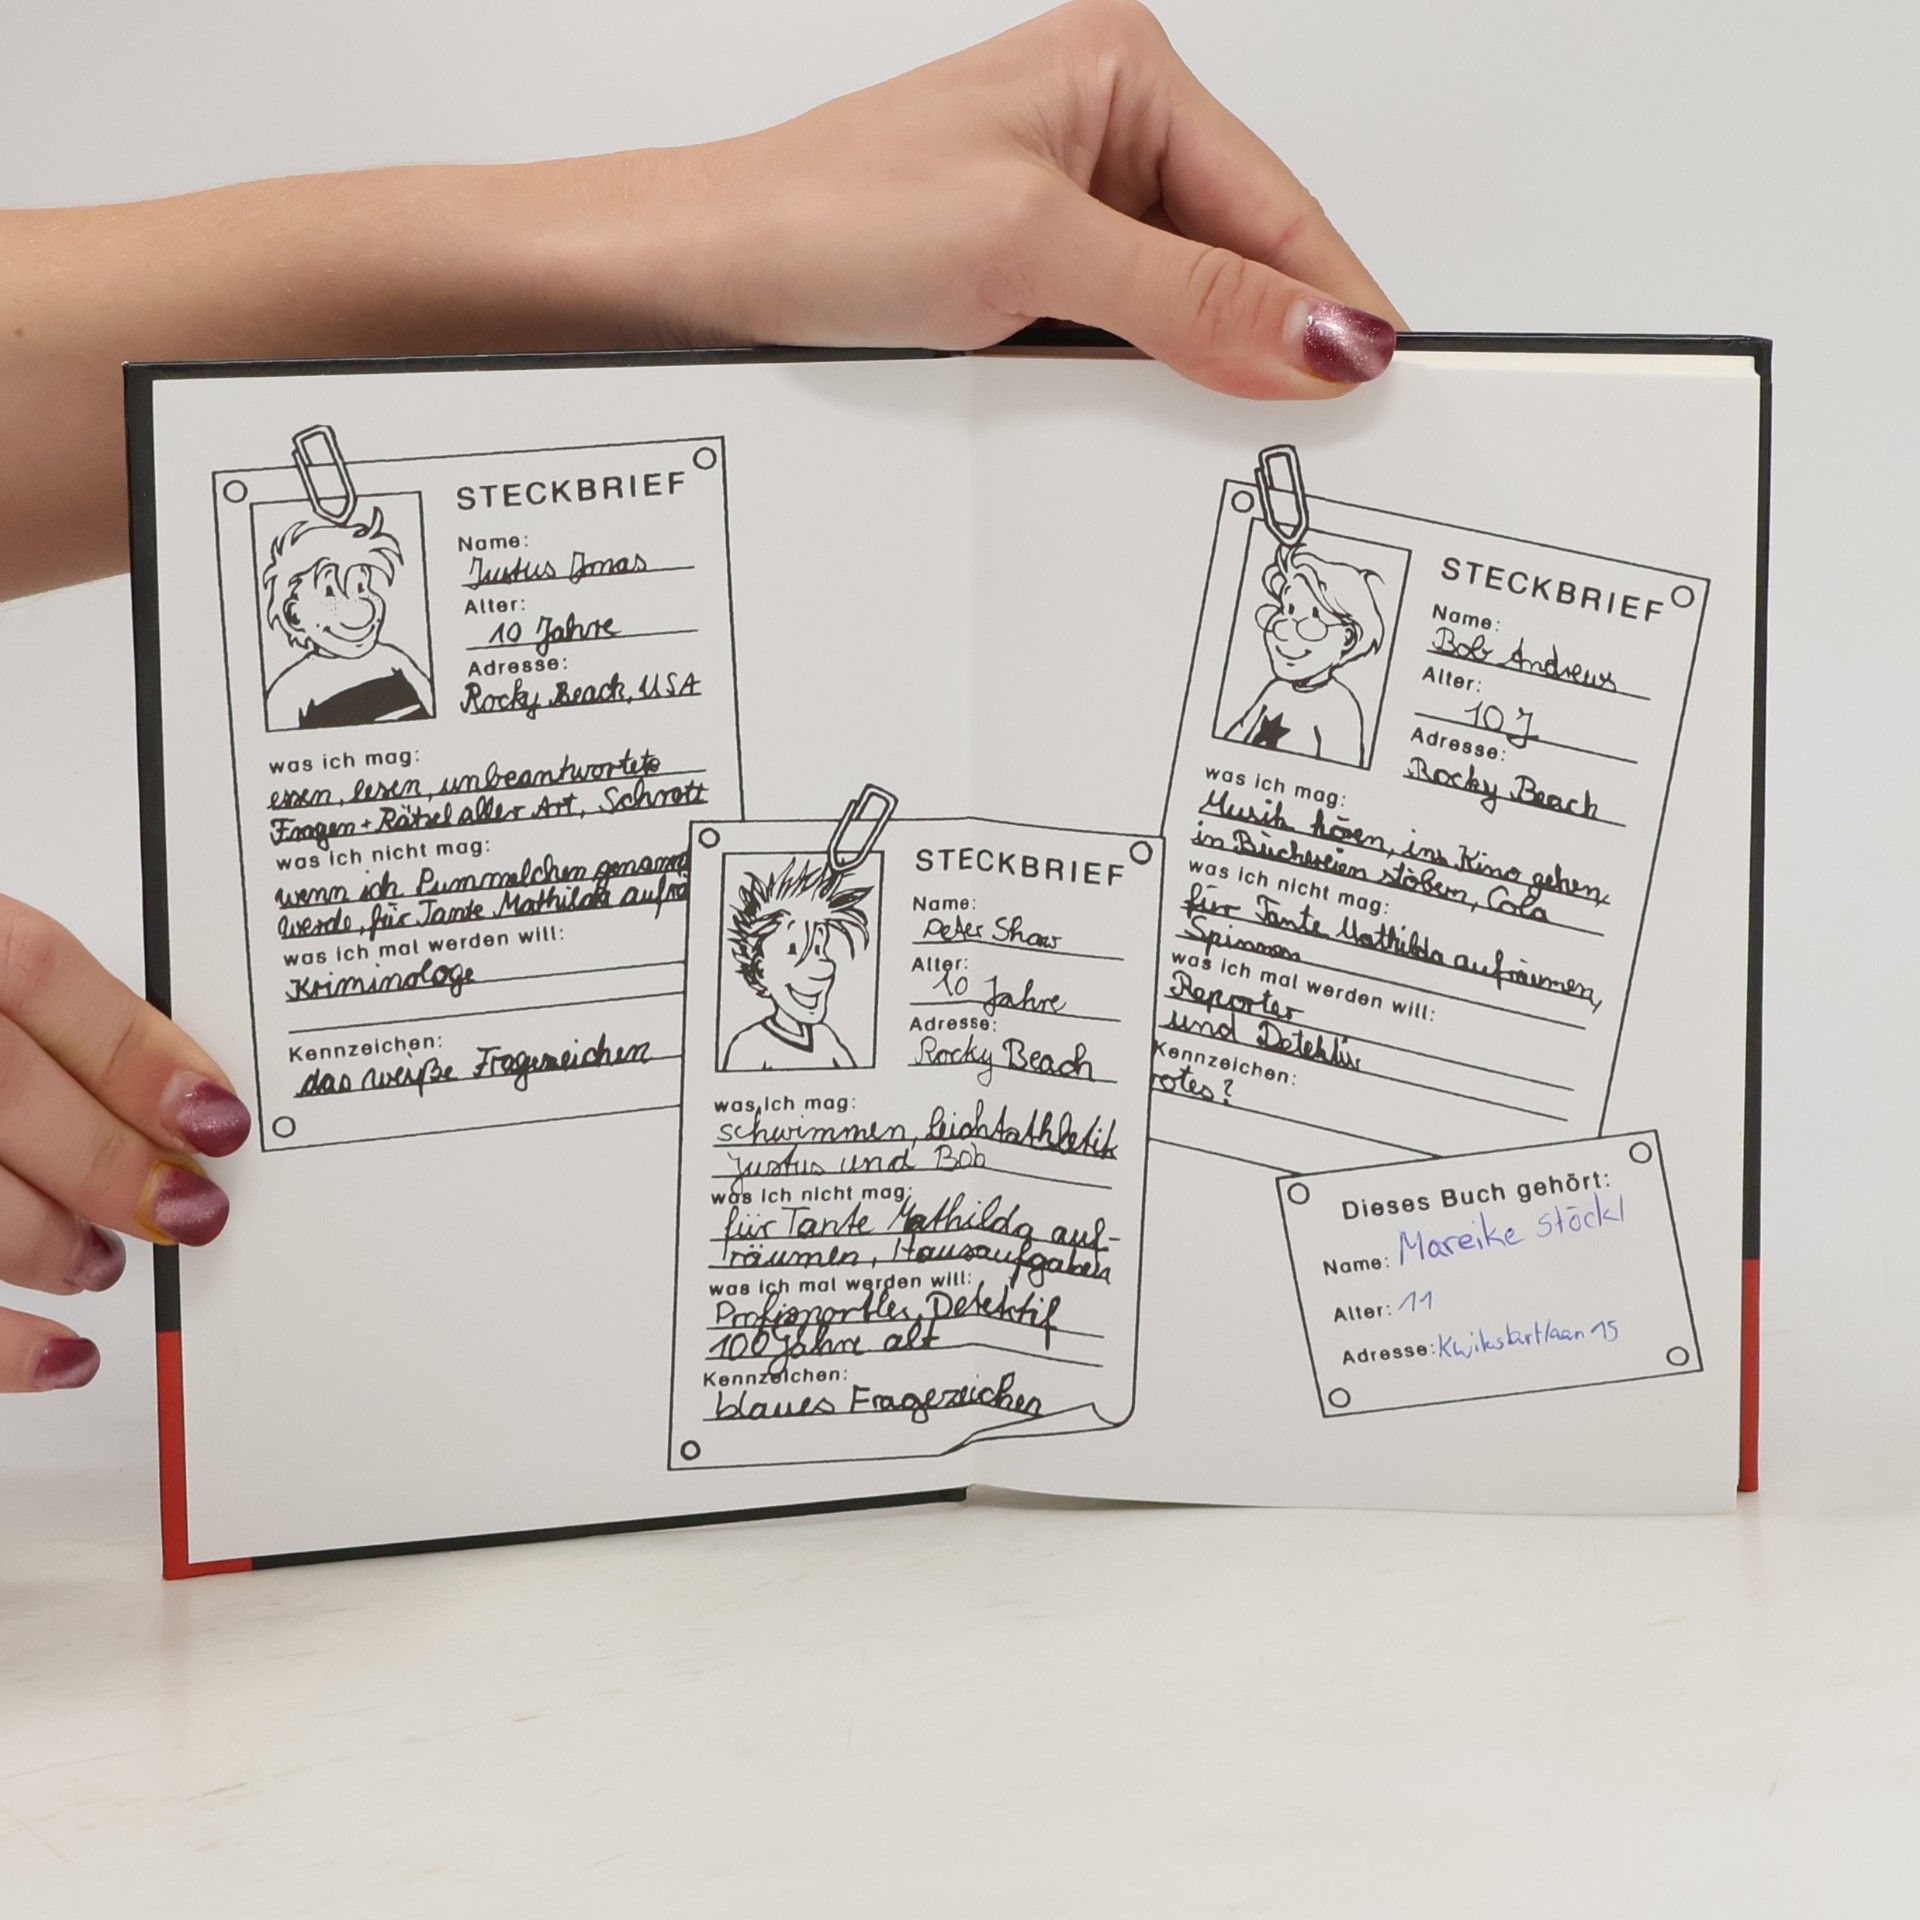 STECKBRIEF
Name:
Justus Jonas
Alter:
10 Jahre
Adresse:
Rocky Beach, USA
was ich mag:
essen, lesen, unbeantwortete
Fragen + Rätsel aller Art, Schrott
was ich nicht mag:
wenn ich Pummelchen genannt
werde, für Tante Mathilda aufrä
was ich mal werden will:
Kriminologe
Kennzeichen:
das weiße Fragezeichen
STECKBRIEF
Name:
Peter Shaw
Alter:
10 Jahre
Adresse:
Rocky Beach
was ich mag:
schwimmen, Leichtathletik
Justus und Bob
was ich nicht mag:
für Tante Mathilda auf-
räumen, Hausaufgaben
was ich mal werden will:
Profisportler, Detektif
100 Jahre alt
Kennzeichen:
blaues Fragezeichen
STECKBRIEF
Name:
Bob Andrews
Alter:
10 J
Adresse:
Rocky Beach
was ich mag:
Musik hören, ins Kino gehen,
in Büchereien stöbern, Cola
was ich nicht mag:
für Tante Mathilda aufräumen,
Spinnen
was ich mal werden will:
Reporter
und Detektiv
Kennzeichen:
rotes ?
Dieses Buch gehört:
Name: Mareike Stöckl
Alter: 11
Adresse: Kwikstartlaan 15